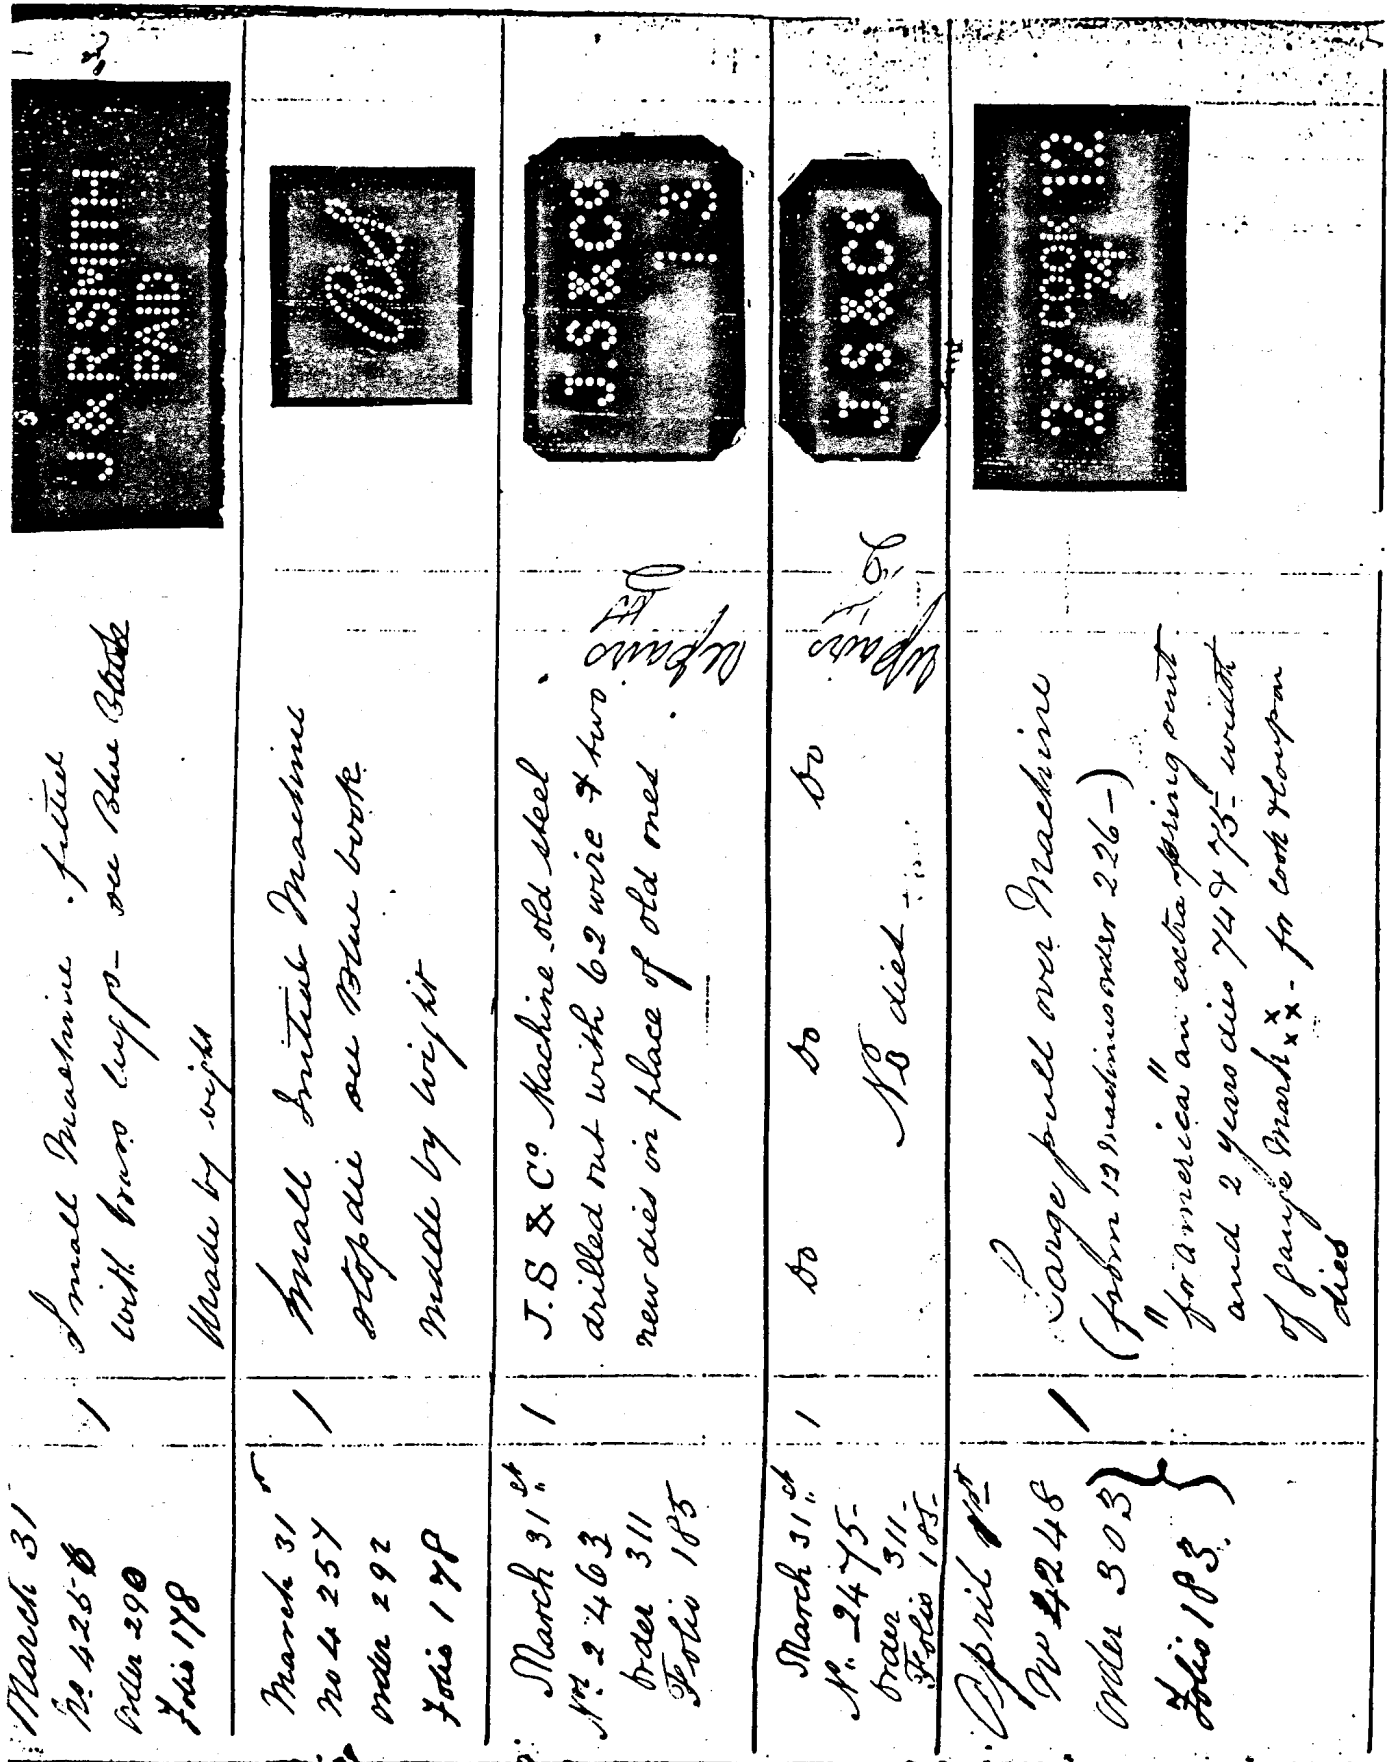 March 31
No 4256
Order 290
Folio 178
1
Small Machine fitted
with brass
on Blue Book
Made by wight
J & R SMITH
PAID
March 31
No 4257
order 292
Folio 178
1
Small Initial Machine
stop die on Blue book
made by wight
March 31st
No 2463
order 311
Folio 185
1
J.S & Co Machine old steel
drilled out with 62 wire & two
new dies in place of old ones
Repairs
J.S & Co
13
March 31st
No 2475-
order 311-
Folio 185-
1
Do Do Do
No dies
Repairs
J.S & Co
April 1st
No 4248
order 303
Folio 183
1
Large pull over Machine
(from 12 Machines order 226-)
"for America" an extra spring out
and 2 years dies 74 & 75- width
of gauge Mark xx xx - for cook & coupon
dies
27 COOK 12
74